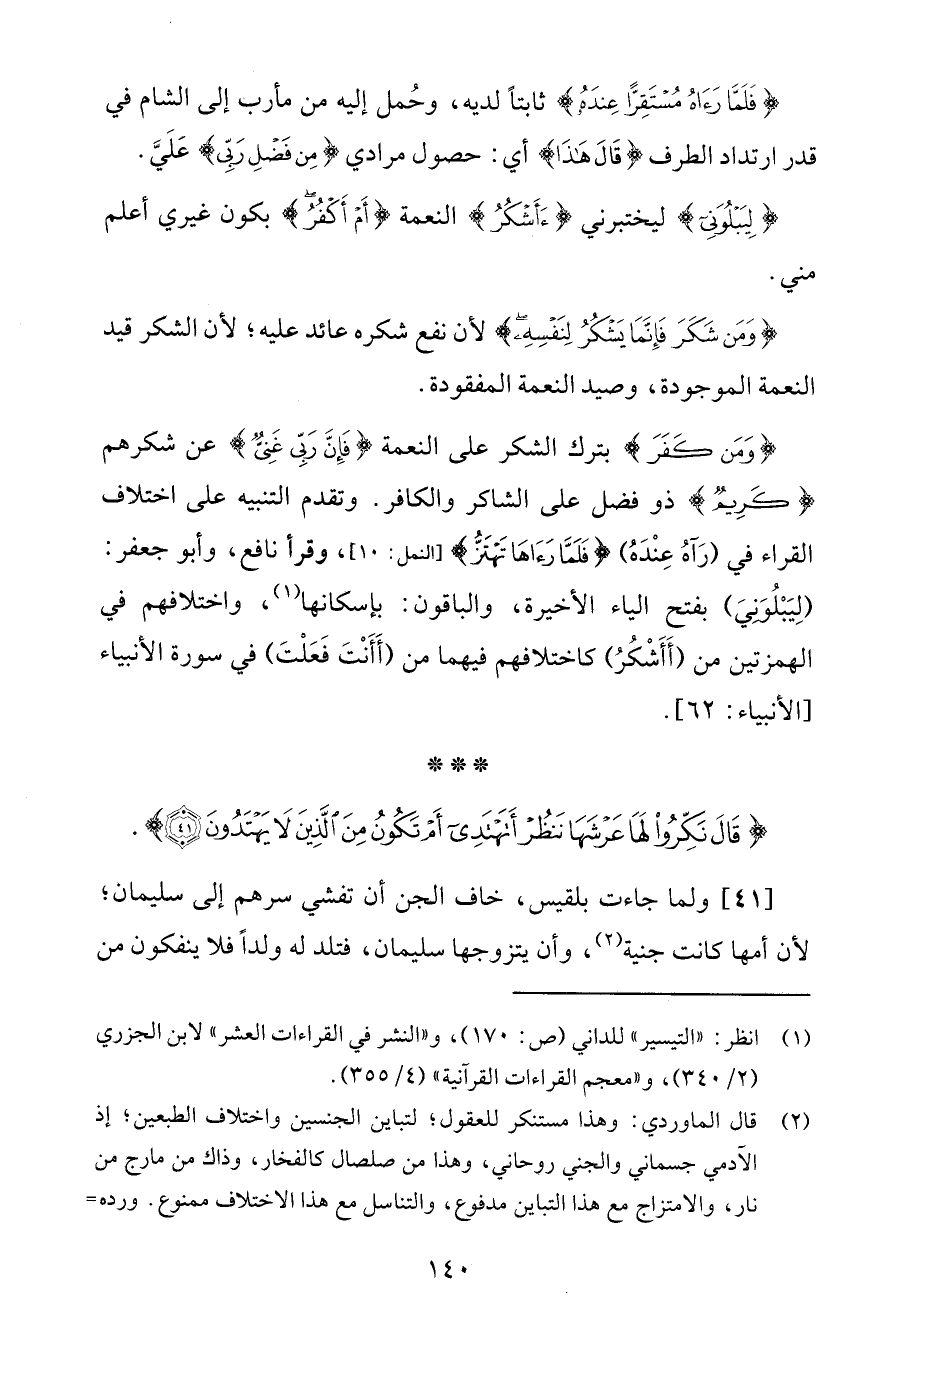 ﴿ فَلَمَّا رَءَاهُ مُسْتَقِرًّا عِندَهُ ﴾ ثابتاً لديه، وحُمل إليه من مأرب إلى الشام في
قدر ارتداد الطرف ﴿ قَالَ هَٰذَا ﴾ أي: حصول مرادي ﴿ مِن فَضْلِ رَبِّي ﴾ عَلَيَّ.
﴿ لِيَبْلُوَنِيٓ ﴾ ليختبرني ﴿ ءَأَشْكُرُ ﴾ النعمة ﴿ أَمْ أَكْفُرُۖ ﴾ بكون غيري أعلم
مني.
﴿ وَمَن شَكَرَ فَإِنَّمَا يَشْكُرُ لِنَفْسِهِۦۖ ﴾ لأن نفع شكره عائد عليه؛ لأن الشكر قيد
النعمة الموجودة، وصيد النعمة المفقودة.
﴿ وَمَن كَفَرَ ﴾ بترك الشكر على النعمة ﴿ فَإِنَّ رَبِّي غَنِيٌّ ﴾ عن شكرهم
﴿ كَرِيمٌ ﴾ ذو فضل على الشاكر والكافر. وتقدم التنبيه على اختلاف
القراء في (رَآهُ عِنْدَهُ) ﴿ فَلَمَّا رَءَاهَا تَهْتَزُّ ﴾ [النمل: ١٠]، وقرأ نافع، وأبو جعفر:
(لِيَبْلُوَنِيَ) بفتح الياء الأخيرة، والباقون: بإسكانها(١)، واختلافهم في
الهمزتين من (أَأَشْكُرُ) كاختلافهم فيهما من (أَأَنْتَ فَعَلْتَ) في سورة الأنبياء
[الأنبياء: ٦٢].
***
﴿ قَالَ نَكِّرُوا۟ لَهَا عَرْشَهَا نَنظُرْ أَتَهْتَدِىٓ أَمْ تَكُونُ مِنَ ٱلَّذِينَ لَا يَهْتَدُونَ ٤١ ﴾.
[٤١] ولما جاءت بلقيس، خاف الجن أن تفشي سرهم إلى سليمان؛
لأن أمها كانت جنية(٢)، وأن يتزوجها سليمان، فتلد له ولداً فلا ينفكون من
(١) انظر: «التيسير» للداني (ص: ١٧٠)، و«النشر في القراءات العشر» لابن الجزري
(٢/ ٣٤٠)، و«معجم القراءات القرآنية» (٤/ ٣٥٥).
(٢) قال الماوردي: وهذا مستنكر للعقول؛ لتباين الجنسين واختلاف الطبعين؛ إذ
الآدمي جسماني والجني روحاني، وهذا من صلصال كالفخار، وذاك من مارج من
نار، والامتزاج مع هذا التباين مدفوع، والتناسل مع هذا الاختلاف ممنوع. ورده=
١٤٠